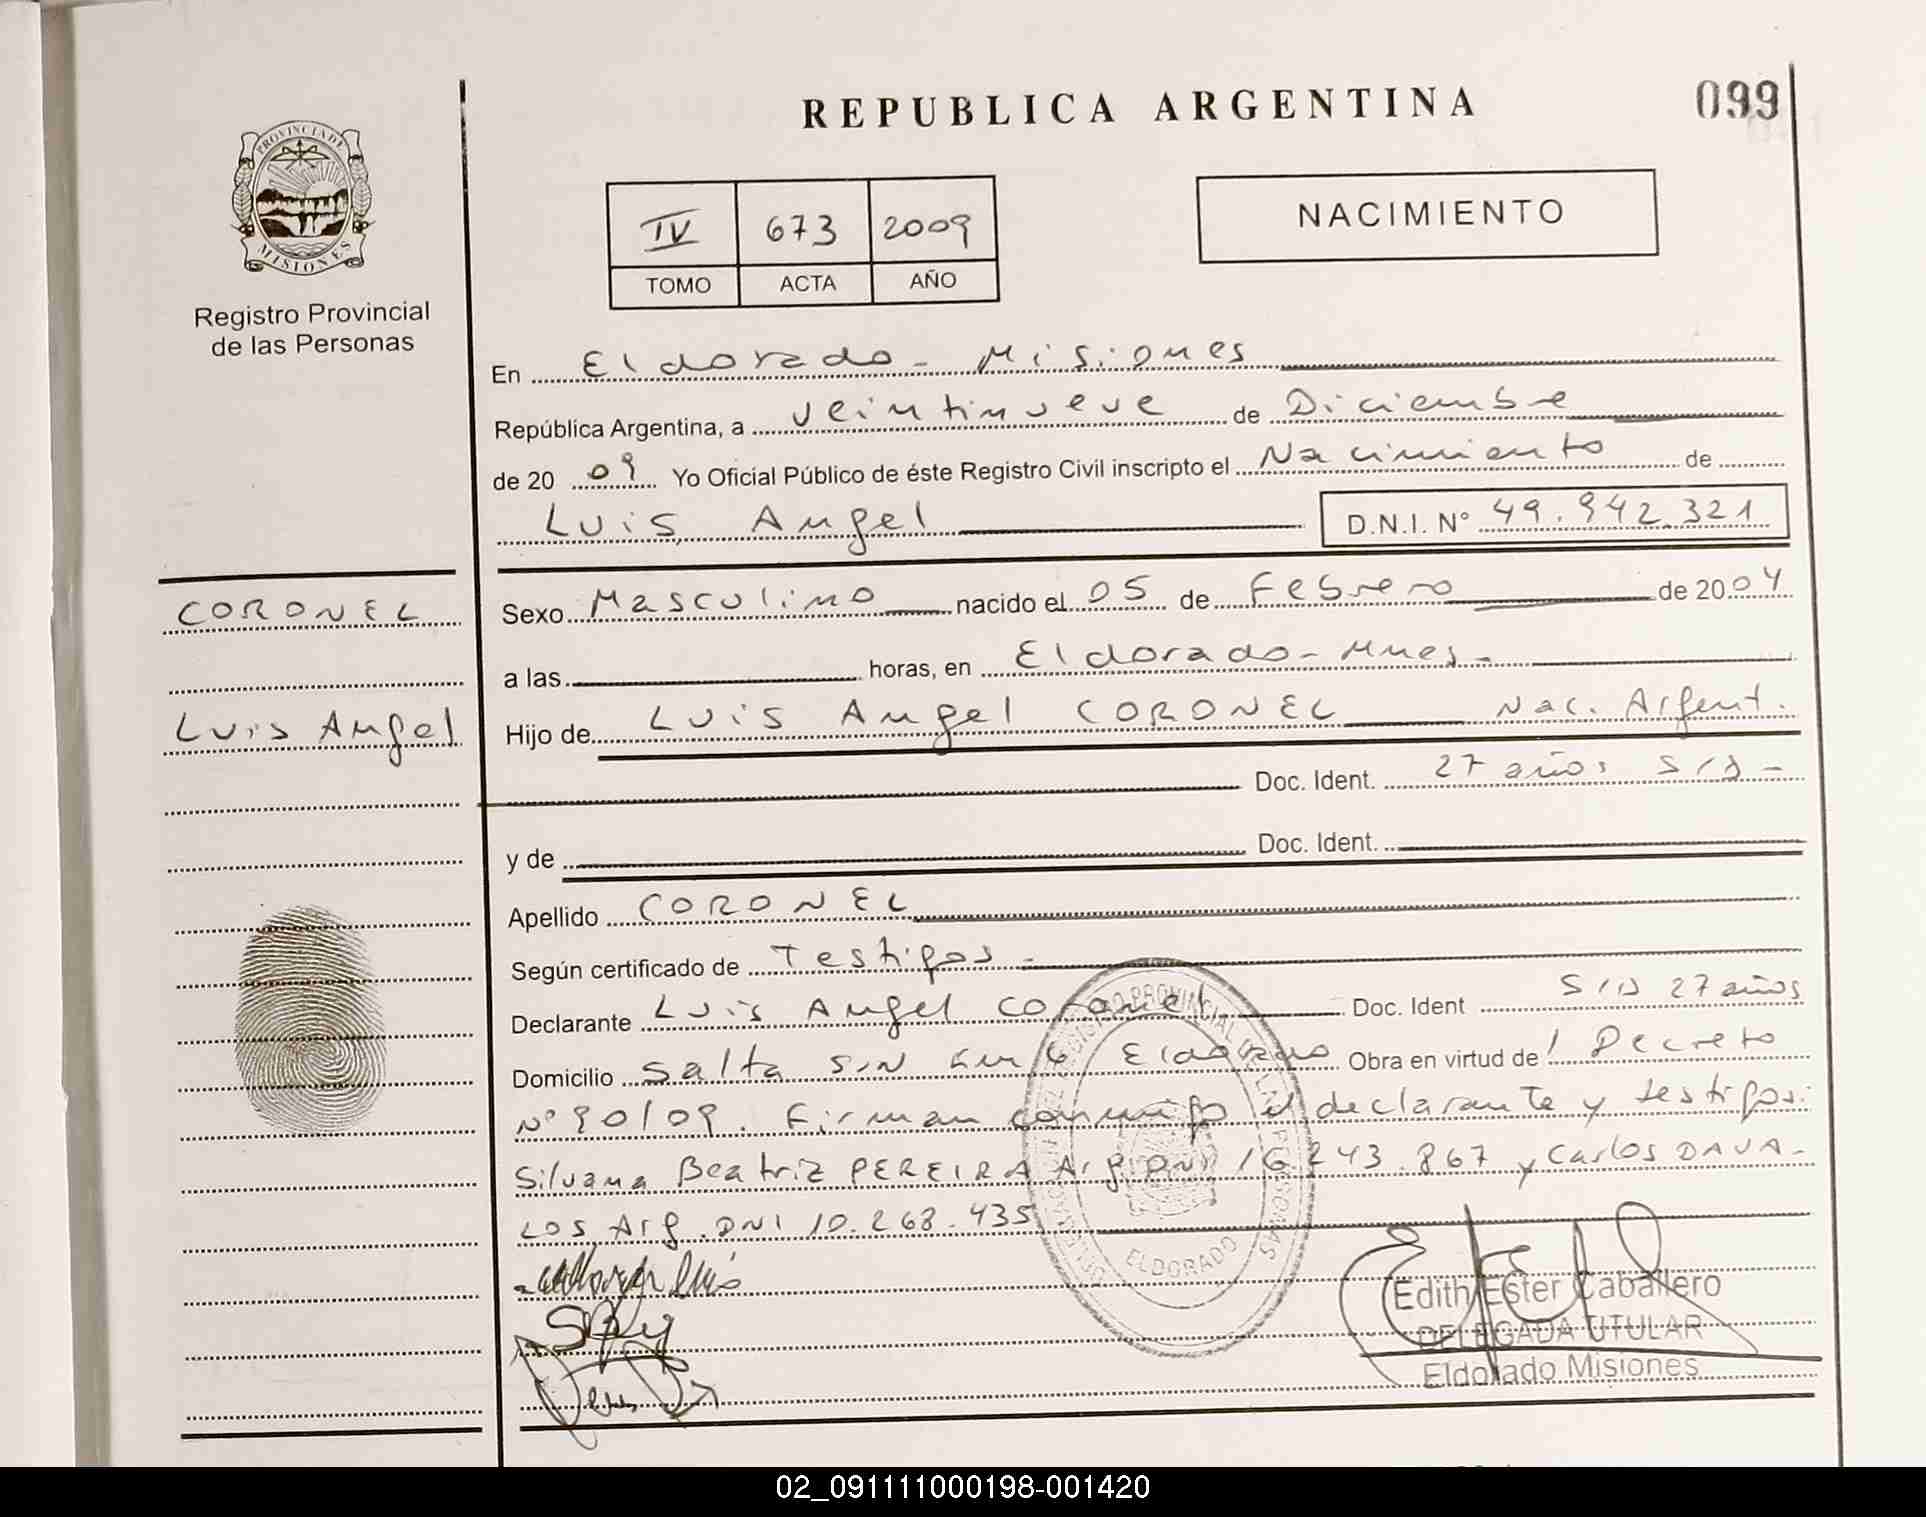 REPUBLICA ARGENTINA
099
PROVINCIA DE
MISIONES
Registro Provincial
de las Personas
IV 673 2009
TOMO ACTA AÑO
NACIMIENTO
En Eldorado - Misiones
República Argentina, a veintinueve de Diciembre
de 20 09 Yo Oficial Público de éste Registro Civil inscripto el Nacimiento de
Luis Angel D.N.I. N° 49.942.321
CORONEL
Luis Angel
Sexo Masculino nacido el 05 de Febrero de 2004
a las horas, en Eldorado - Mnes -
Hijo de Luis Angel CORONEL Nac. Argent.
Doc. Ident. 27 años S/D -
y de Doc. Ident.
Apellido CORONEL
Según certificado de Testigos -
Declarante Luis Angel Coronel Doc. Ident S/D 27 años
Domicilio Salta S/N km 6 Eldorado Obra en virtud de Decreto
N° 90/09. Firman conmigo el declarante y testigos:
Silvana Beatriz PEREIRA Arg. DNI 16.243.867 y Carlos DAVA-
LOS Arg. DNI 10.268.435
REGISTRO PROVINCIAL DE LAS PERSONAS
ELDORADO
Luis
Edith Ester Caballero
DELEGADA TITULAR
Eldorado Misiones
02_091111000198-001420